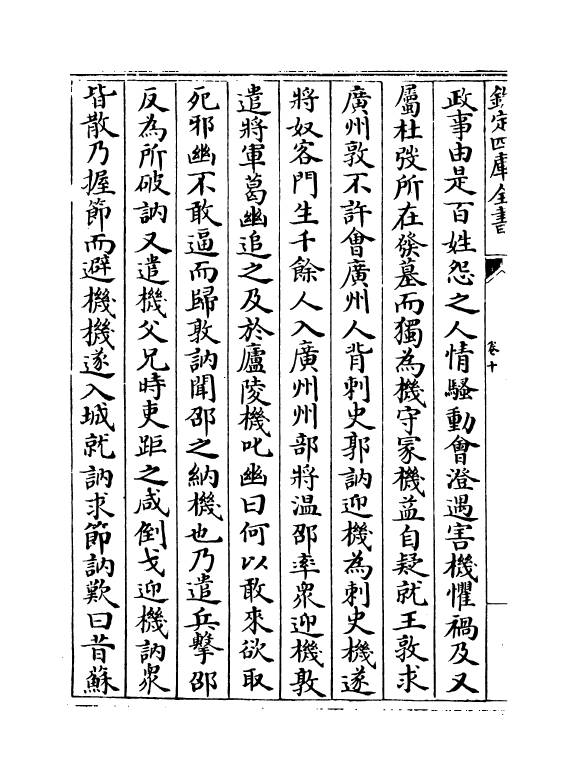 欽定四庫全書
卷十
政事由是百姓怨之人情騷動會澄遇害機懼禍及又
屬杜弢所在發墓而獨為機守冢機益自疑就王敦求
廣州敦不許會廣州人背刺史郭訥迎機為刺史機遂
將奴客門生千餘人入廣州州部將温邵率衆迎機敦
遣將軍葛幽追之及於廬陵機叱幽曰何以敢來欲取
死邪幽不敢逼而歸敦訥聞邵之納機也乃遣兵擊邵
反為所破訥又遣機父兄時吏距之咸倒戈迎機訥衆
皆散乃握節而避機機遂入城就訥求節訥歎曰昔蘇